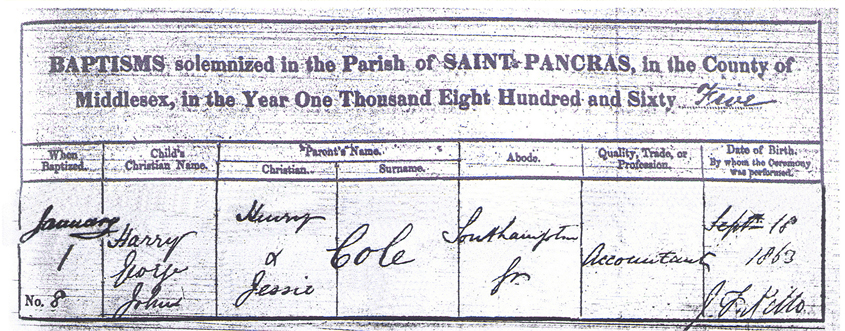 BAPTISMS solemnized in the Parish of SAINT PANCRAS, in the County of
Middlesex, in the Year One Thousand Eight Hundred and Sixty Five
When Baptized.
Child's Christian Name.
Parent's Name.
Christian.
Surname.
Abode.
Quality, Trade, or Profession.
Date of Birth.
By whom the Ceremony was performed.
January
1
No. 8
Harry
George
John
Henry
&
Jessie
Cole
Southampton
Accountant
Septr 18
1863